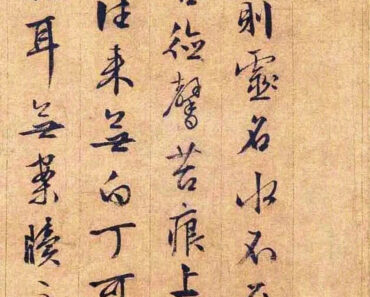 則靈名水不
德馨苔痕上
往来無白丁可
耳無案牘